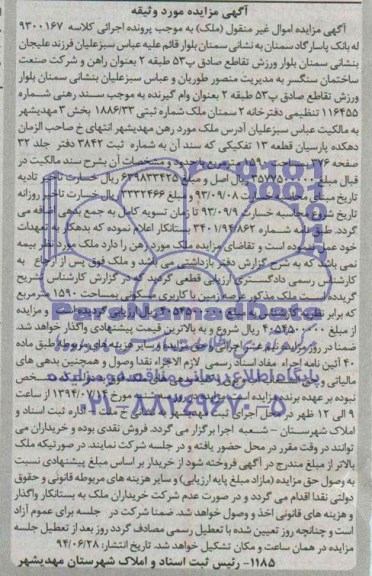 آگهی مزایده مورد وثیقه
آگهی مزایده اموال غیر منقول (ملک) به موجب پرونده اجرائی کلاسه ۹۳۰۰۱۶۷
له بانک پاسارگاد سمنان به نشانی سمنان بلوار قائم علیه عباس سبزعلیان فرزند علیجان
بنشانی سمنان بلوار ورزش تقاطع صادق پ۵۳ طبقه ۲ بعنوان راهن و شرکت صنعت
ساختمان سنگسر به مدیریت منصور طوریان و عباس سبزعلیان بنشانی سمنان بلوار
ورزش تقاطع صادق پ۵۳ طبقه ۲ بعنوان وام گیرنده به موجب سند رهنی شماره
۱۱۶۴۵۵ تنظیمی دفترخانه ۲ سمنان ملک شماره ثبتی ۱۸۸۶/۳۳ بخش ۳ مهدیشهر
به مالکیت عباس سبزعلیان آدرس ملک مورد رهن مهدیشهر انتهای خ صاحب الزمان
دهکده پارسیان قطعه ۱۳ تفکیکی که سند آن به شماره ثبت ۳۸۴۲ دفتر جلد ۳۲
صفحه ۳۷۶ مساحت ۱۵۹۰ مترمربع با حدود و مشخصات آن بشرح سند مالکیت در
قبال مبلغ ریال اصل و مبلغ ۶۳۹۸۳۳۴۲۵ ریال خسارت تاخیر تادیه
تاریخ مبنای محاسبه خسارت ۹۳/۰۹/۰۸ و مبلغ ۳۳۳۲۴۶۶ ریال خسارت تاخیر روزانه
تاریخ شروع محاسبه خسارت ۹۳/۰۹/۹ تا زمان تسویه کامل به جمع بدهی اضافه می
گردد. طبق نامه شماره ۳۴۰۱/۹۴۸۶۲ بستانکار اعلام نموده که بدهکار به تعهدات
خود عمل ننموده است و تقاضای مزایده ملک مورد رهن را دارد ملک مورد نظر بیمه
نمی باشد که به شرح گزارش دفتر بازداشتی می باشد و ملک فوق پس از ارجاع به
کارشناس رسمی دادگستری ارزیابی قطعی گردید که در گزارش کارشناس تشریح
گردیده است ملک مذکور عرصه زمین با کاربری مسکونی بمساحت ۱۵۹۰ مترمربع
که برابر نظریه کارشناس به مبلغ ۴۰۵۴۵۰۰۰۰۰ ریال ارزیابی گردیده و مزایده
از مبلغ ۴۰۵۴۵۰۰۰۰۰ ریال شروع و به بالاترین قیمت پیشنهادی واگذار خواهد شد.
ضمنا در روز و سایر هزینه های مربوطه طبق ماده
۴۰ آئین نامه اجراء مفاد اسناد رسمی لازم الاجراء نقدا وصول و همچنین بدهی های
مالیاتی و
نبوده بر عهده برنده مزایده است مورخ ۱۳۹۴/۰۷/۱۴ از ساعت
۹ الی ۱۲ ظهر در محل اجرای اداره ثبت اسناد و
املاک شهرستان – شعبه اجرا برگزار می گردد. فروش نقدی بوده و خریداران می
توانند در وقت مقرر در محل حضور یافته و در جلسه شرکت نمایند. در صورتیکه ملک
بالاتر از مبلغ مندرج در آگهی فروخته شود از خریدار بر اساس مبلغ پیشنهادی نسبت
به وصول حق مزایده (مازاد مبلغ پایه ارزیابی) و سایر هزینه های مربوطه قانونی و حقوق
دولتی نقدا اقدام می گردد و در صورت عدم شرکت خریداران ملک به بستانکار واگذار
و هزینه های قانونی اخذ و وصول خواهد شد. ضمنا شرکت در جلسه برای عموم آزاد
است و چنانچه روز تعیین شده با تعطیل رسمی مصادف گردد روز بعد از تعطیل جلسه
مزایده در همان ساعت و مکان تشکیل خواهد شد. تاریخ انتشار: ۹۴/۰۶/۲۸
۱۱۸۵- رئیس ثبت اسناد و املاک شهرستان مهدیشهر